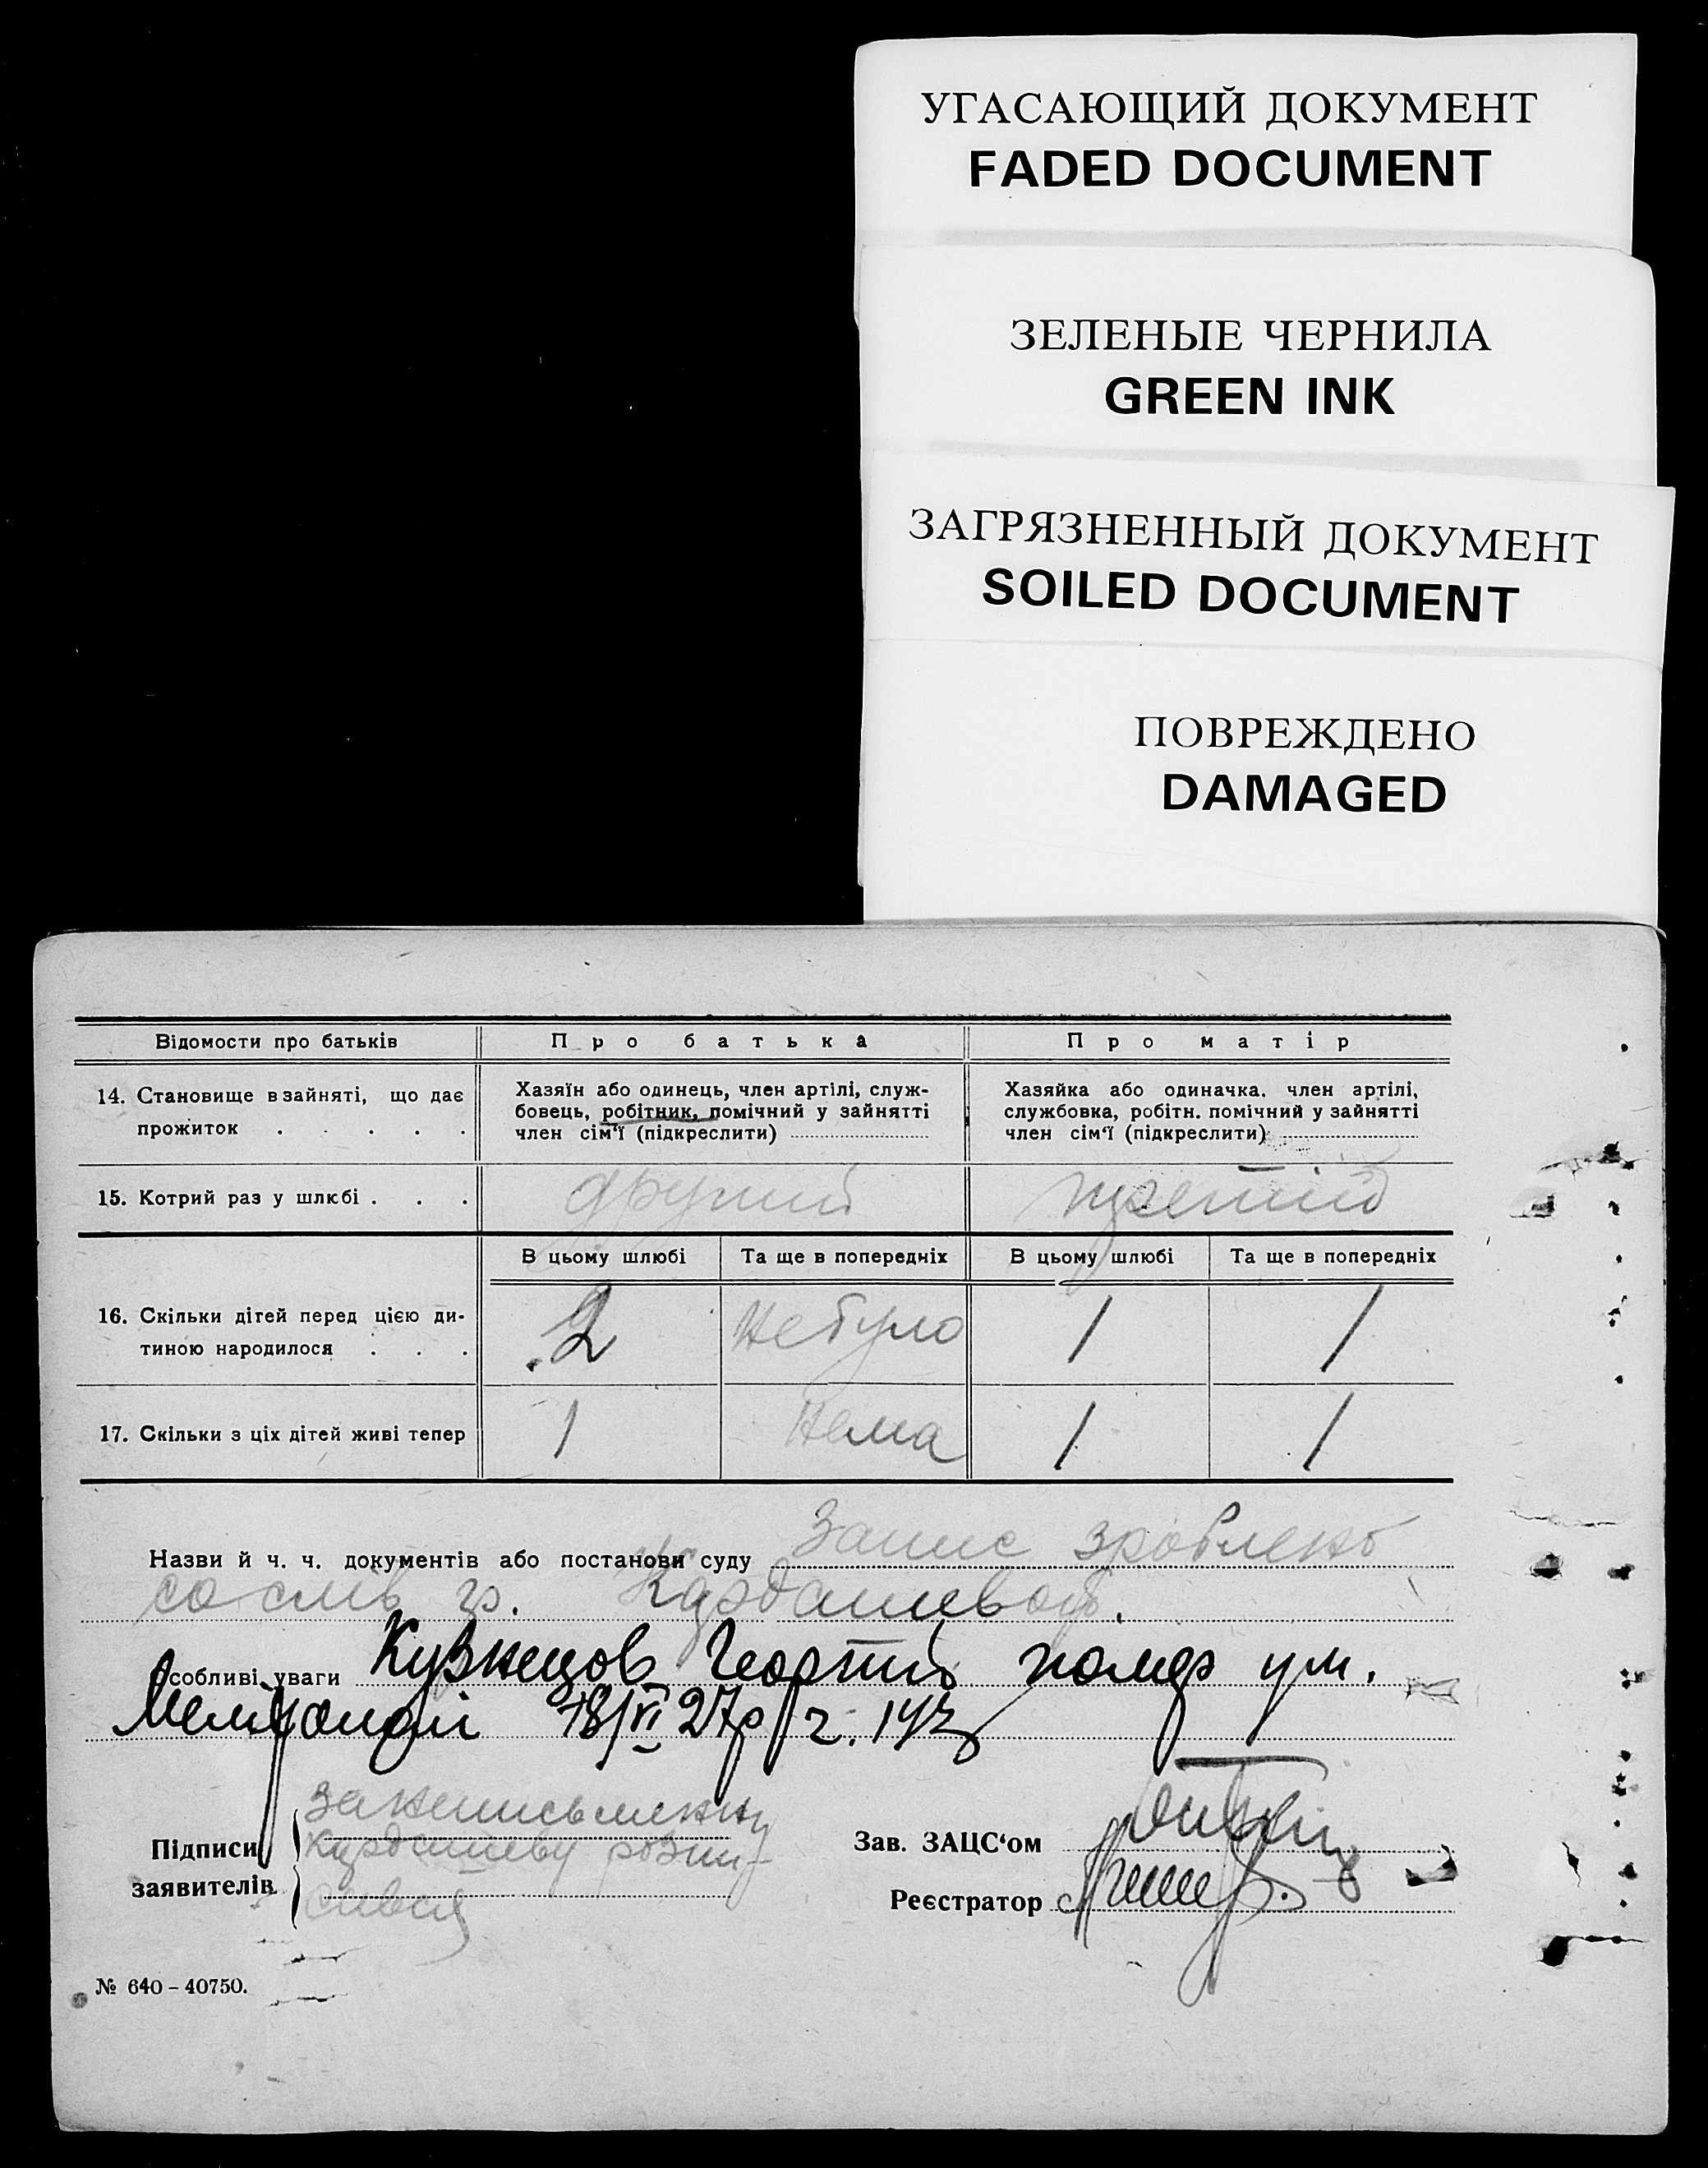 УГАСАЮЩИЙ ДОКУМЕНТ
FADED DOCUMENT
ЗЕЛЕНЫЕ ЧЕРНИЛА
GREEN INK
ЗАГРЯЗНЕННЫЙ ДОКУМЕНТ
SOILED DOCUMENT
ПОВРЕЖДЕНО
DAMAGED
Відомости про батьків Про батька Про матір
14. Становище в зайняті, що дає прожиток . . . . .
Хазяїн або одинець, член артілі, служ-
бовець, робітник, помічний у зайнятті
член сім'ї (підкреслити)
Хазяйка або одиначка, член артілі,
службовка, робітн. помічний у зайнятті
член сім'ї (підкреслити)
15. Котрий раз у шлюбі . . . другий третій
В цьому шлюбі Та ще в попередніх В цьому шлюбі Та ще в попередніх
16. Скільки дітей перед цією ди-
тиною народилося . . . 2 не було 1 1
17. Скільки з ціх дітей живі тепер 1 нема 1 1
Назви й ч. ч. документів або постанови суду Запис зроблено
со слів гр. Курдашевой.
Особливі уваги Кузнецов Георгій помер у м.
18/VI 27р ч. 143
Підписи заявителів
за неписьменну
Курдашеву розпи-
Зав. ЗАЦС'ом
Реєстратор
№ 640 – 40750.